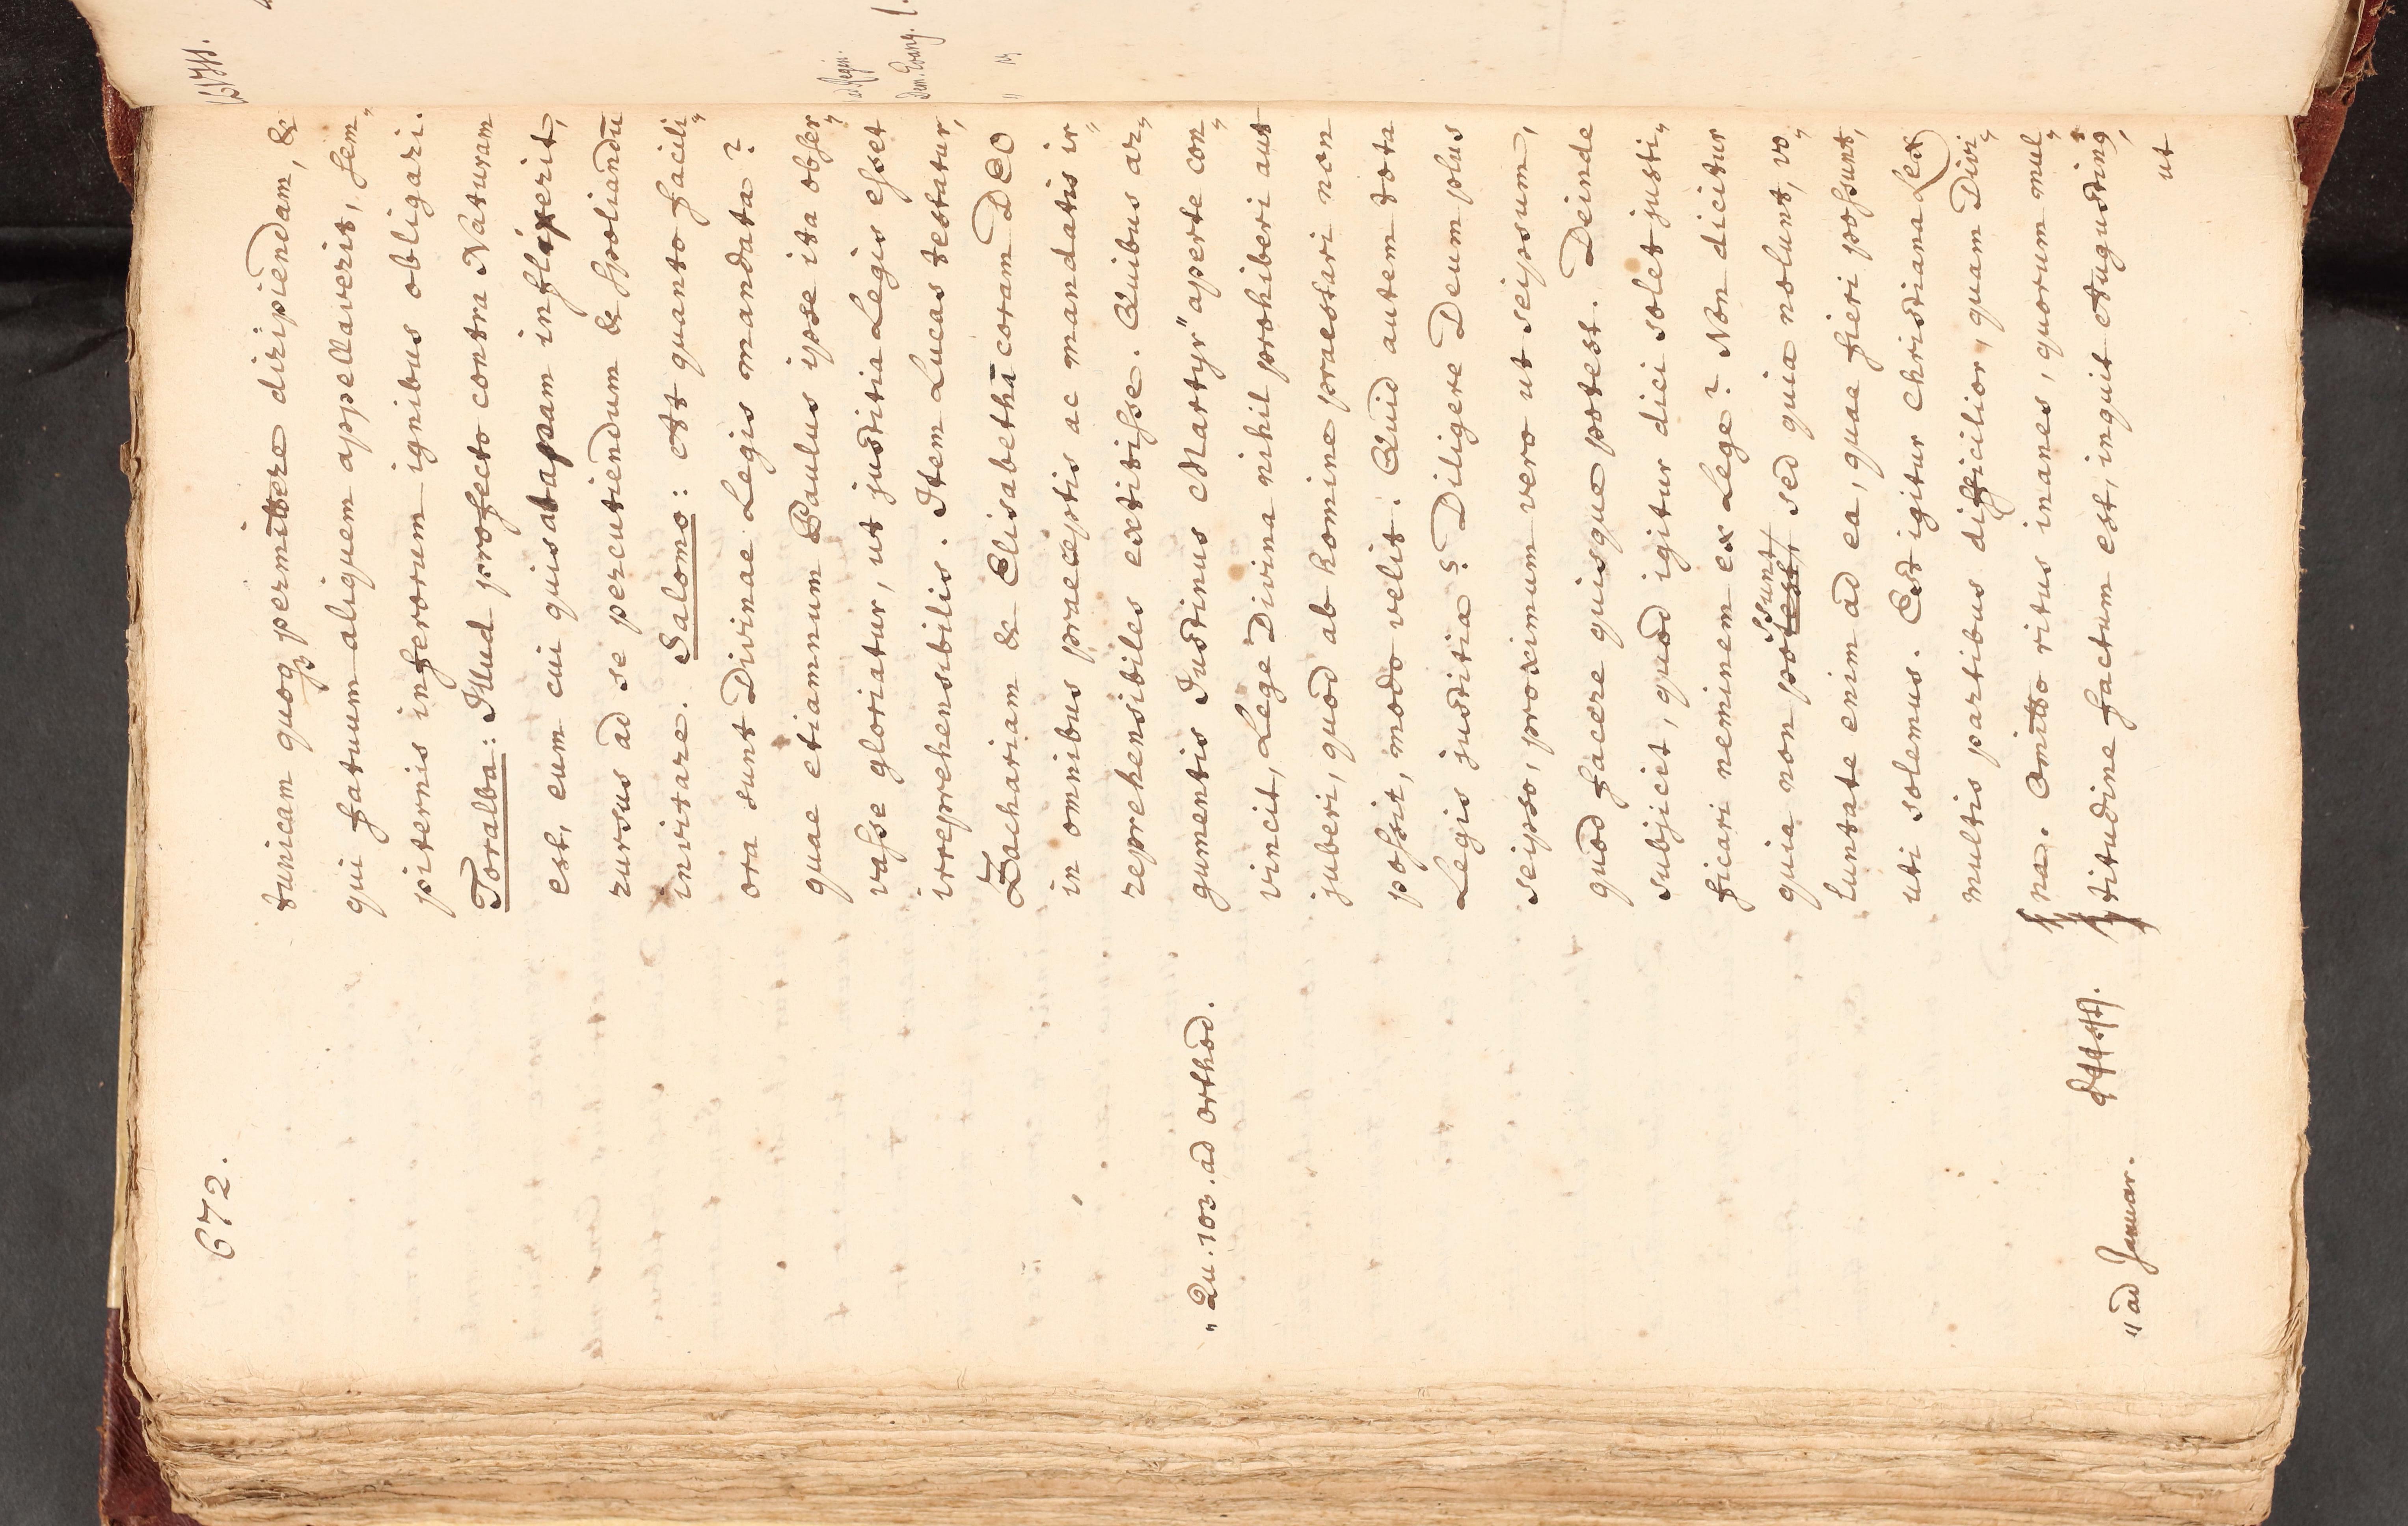 672.
tunicam quoq; permittere diripiendam, &
qui fatuum aliquem appellaverit, sem„
piternis inferorum ignibus obligari.
Toralba: Illud profecto contra Naturam
est, eum cui quis alapam inflixerit,
rursus ad se percutiendum & spoliandū
invitare. Salomo: At quanto facili„
ora sunt Divinae Legis mandata?
quae etiamnum Paulus ipse ita obser„
vasse gloriatur, ut justitia Legis esset
irreprehensibilis. Item Lucas testatur,
Zachariam & Elisabethā coram DEO
in omnibus praeceptis ac mandatis ir„
reprehensibiles extitisse. Quibus ar„
gumentis Justinus Martyr" aperte con„
"Qu. 103. ad orthod.
vincit, Lege Divina nihil prohiberi aut
juberi, quod ab homine praestari non
possit, modo velit. Quid autem tota
Legis justitia? Diligere Deum plus
seipso, proximum vero ut seipsum,
quod facere quisque potest. Deinde
subjicit, quod igitur dici solet justi„
ficari neminem ex Lege? Non dicitur
quia non potest possunt, sed quia nolunt, vo„
luntate enim ad ea, quae fieri possunt,
uti solemus. Est igitur christiana Lex
multis partibus difficilior, quam Divi„
na. Omitto ritus inanes, quorum mul„
titudine factum est, inquit Augustinq,
"ad Januar.
ut
ad Regin.
Dem. Evang. l.